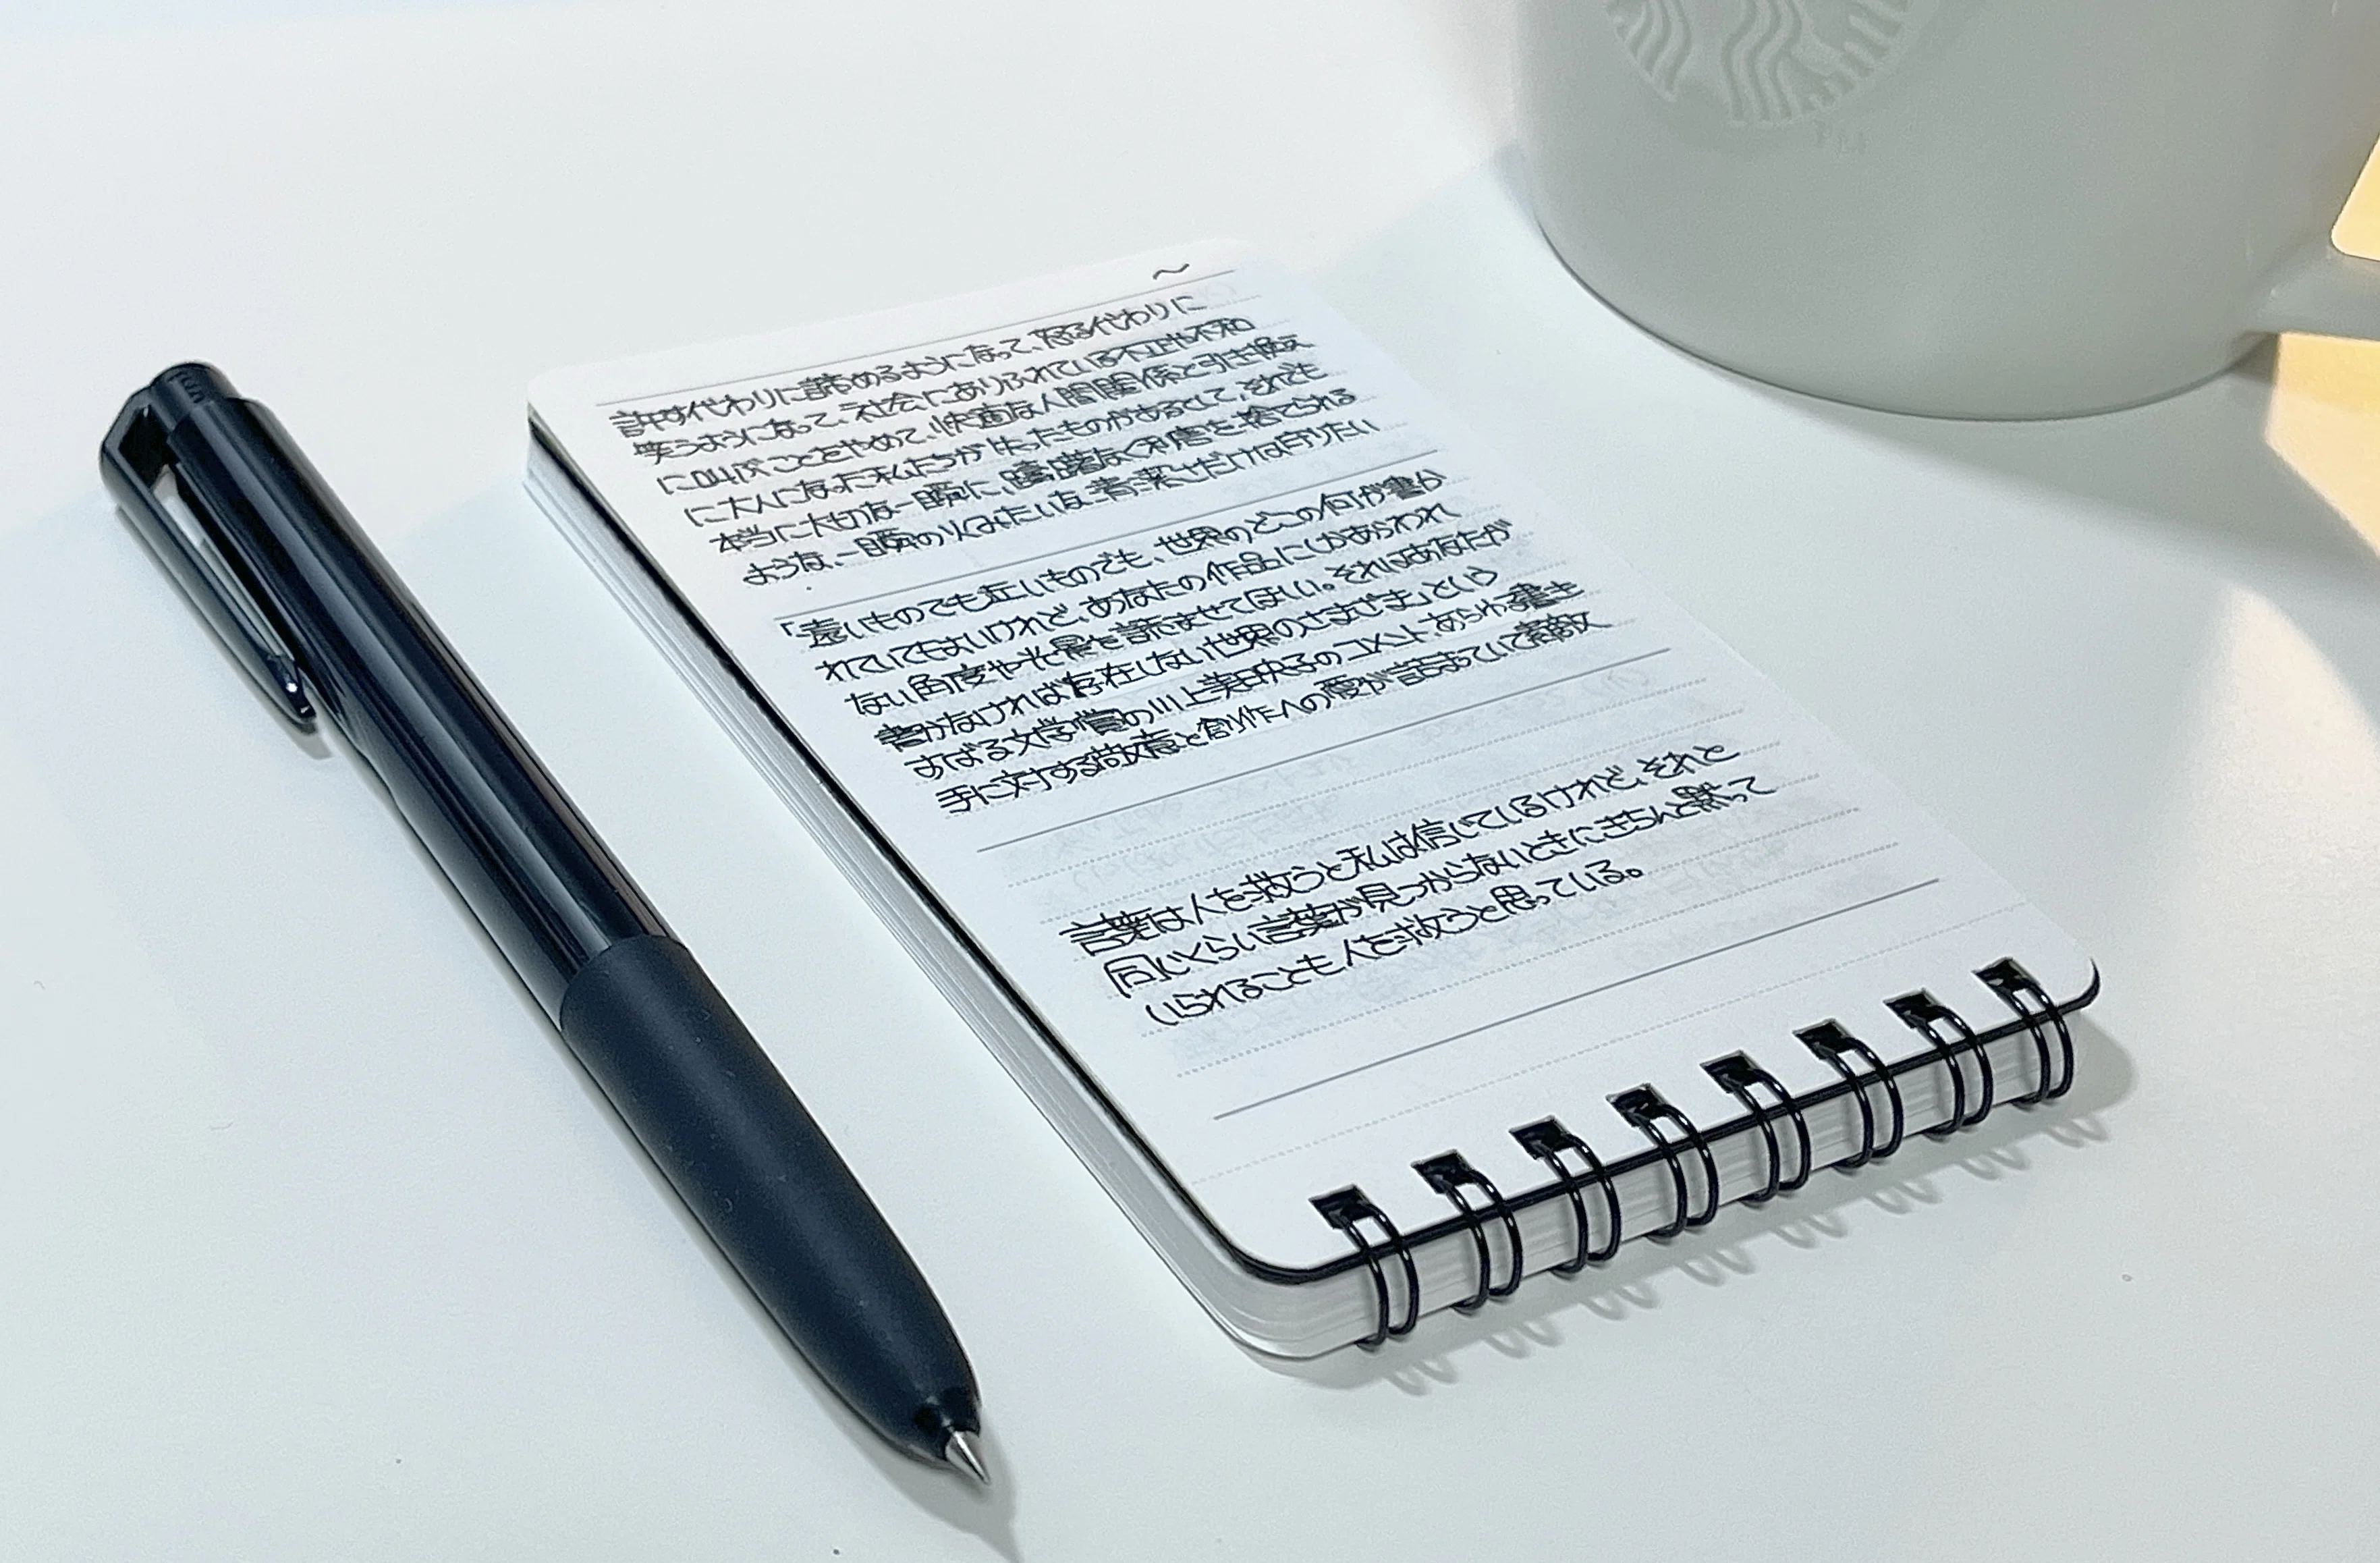 〜
許す代わりに諦めるようになって、怒る代わりに
笑うようになって、社会にありふれている不正や不和
に叫ぶことをやめて、快適な人間関係と引き換え
に大人になった私たちが失ったものがあるとして、それでも
本当に大切な一瞬に、躊躇なく利害を捨てられる
ような、一瞬の火みたいな青さだけは守りたい
「遠いものでも近いものでも、世界のどこの何が書か
れていてもよいけれど、あなたの作品にしかあらわれ
ない角度や光景を読ませてほしい。それはあなたが
書かなければ存在しない世界のさまざま」という
すばる文学賞の川上未映子のコメント、あらゆる書き
手に対する敬意と創作への愛が詰まっていて素敵
言葉は人を救うと私は信じているけれど、それと
同じくらい言葉が見つからないときにきちんと黙って
いられることも人を救うと思っている。
TM